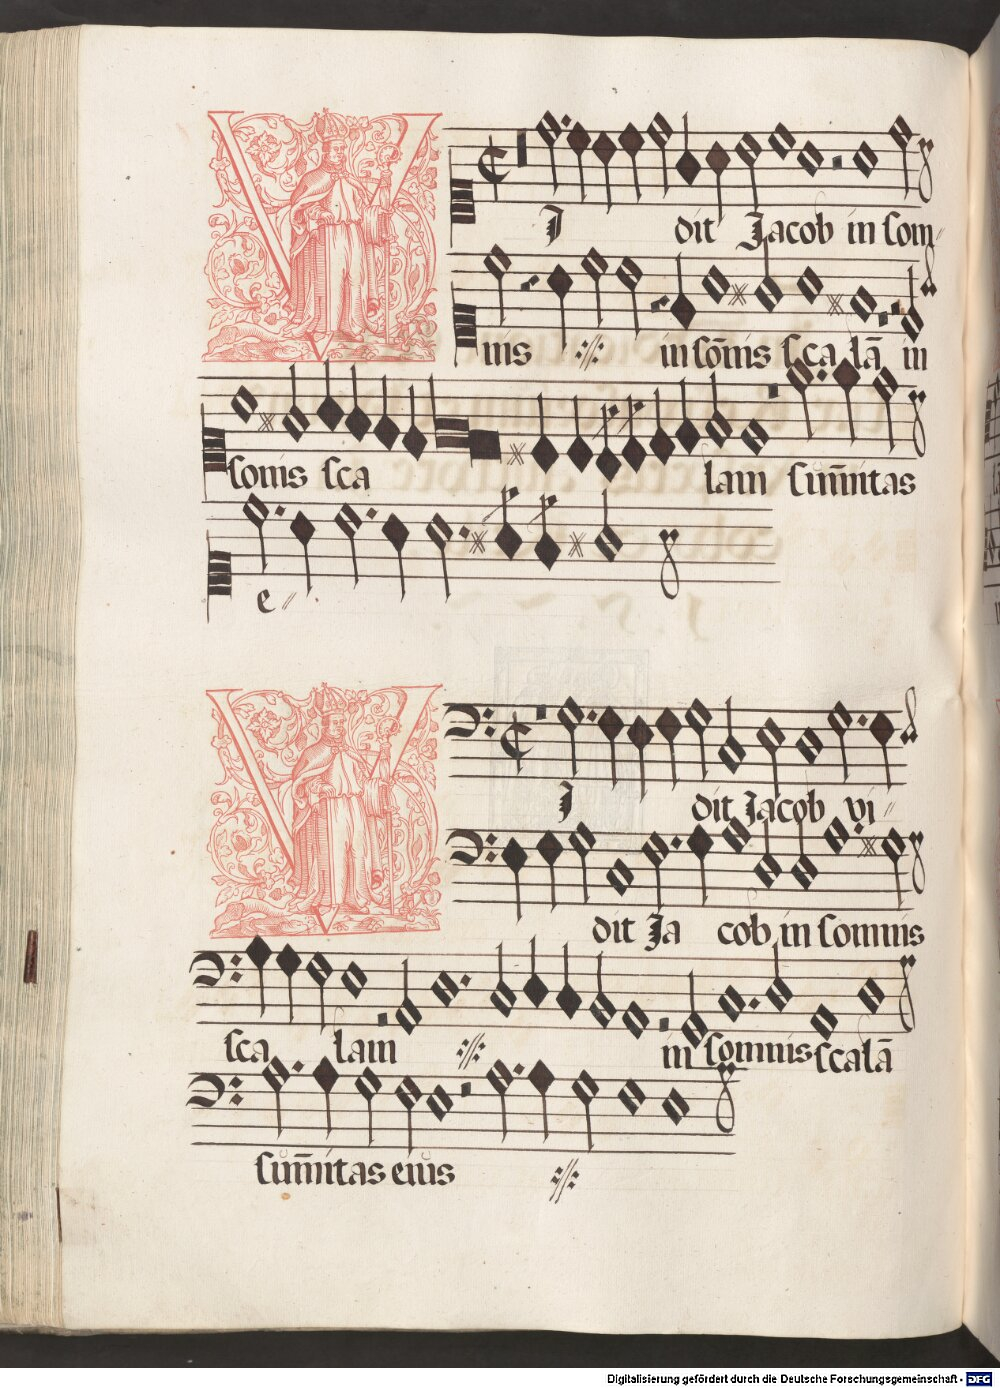 VI dit Jacob in som
nis in som̄s scalā in
somis sca lam sum̄itas
e
VI dit Jacob vi
dit Ja cob in somnis
sca lam in somnis scalā
sum̄itas eius
Digitalisierung gefördert durch die Deutsche Forschungsgemeinschaft - DFG